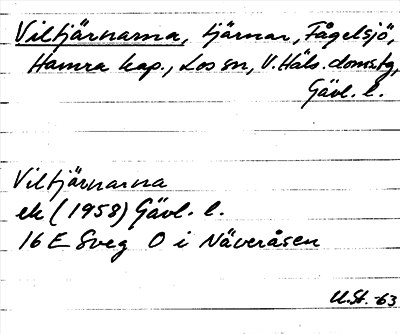 Viltjärnarna, tjärnar, Fågelsjö,
Hamra kap., Los sn, V. Häls. domstg,
Gävl. l.
Viltjärnarna
ek (1958) Gävl. l.
16 E Sveg O i Näveråsen
U.St. -63